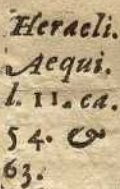 Heracli.
Aequi.
l. 11. ca.
54. &
63.